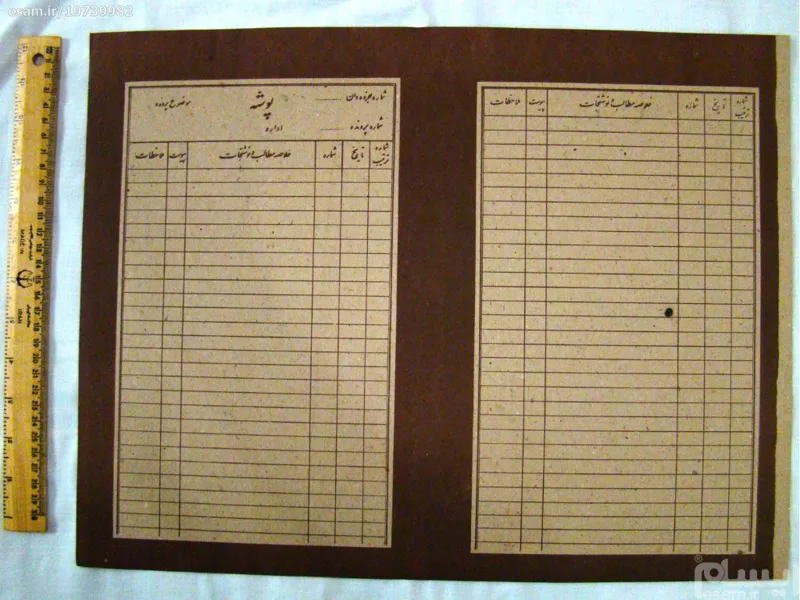 esam.ir/19739982
شماره جزوه دان
پوشه
موضوع پرونده
شماره پرونده
اداره
شماره ترتیب
تاریخ
شماره
خلاصه مطالب یا نوشتجات
پیوست
ملاحظات
شماره ترتیب
تاریخ
شماره
خلاصه مطالب یا نوشتجات
پیوست
ملاحظات
MADE IN
IRAN
esam.ir